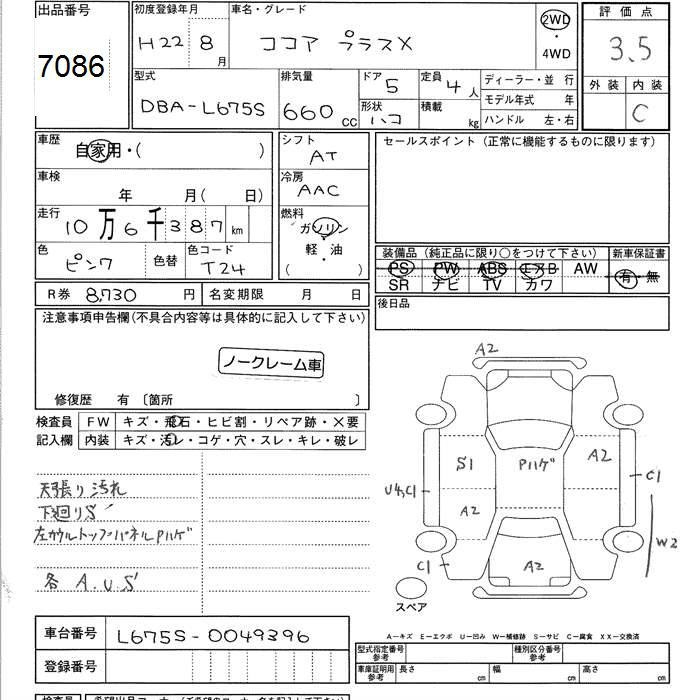 出品番号 初度登録年月 車名・グレード 評価点
7086 H22 8月 ココア プラスX 2WD・4WD 3.5
型式 排気量 ドア 5 定員 4人 ディーラー・並 行 外装 内装
DBA-L675S 660cc 形状 ハコ 積載 kg モデル年式 年 C
ハンドル 左・右
車歴 シフト セールスポイント (正常に機能するものに限ります)
自家用・( ) AT
車検 冷房
年 月( 日) AAC
走行 燃料
10万6千387km ガソリン
軽・油
( )
色 ピンク 色替 色コード T24
装備品 (純正品に限り○をつけて下さい) 新車保証書
PS PW ABS エアB AW 有・無
SR ナビ TV カワ
R券 8,730 円 名変期限 月 日 後日品
注意事項申告欄(不具合内容等は具体的に記入して下さい)
ノークレーム車
修復歴 有 〔箇所 〕
検査員 FW キズ・飛石・ヒビ割・リペア跡・×要
記入欄 内装 キズ・汚レ・コゲ・穴・スレ・キレ・破レ
天張り汚れ
下廻りS
左カウルトップパネルPハゲ
各 A.U.S
A2
S1 Pハゲ A2
C1
A2
W2
C1 A2
スペア
A-キズ E-エクボ U-凹み W-補修跡 S-サビ C-腐食 XX-交換済
車台番号 L675S-0049396
登録番号
型式指定番号 参考 種別区分番号 参考
車庫証明用 参考 長さ cm 幅 cm 高さ cm